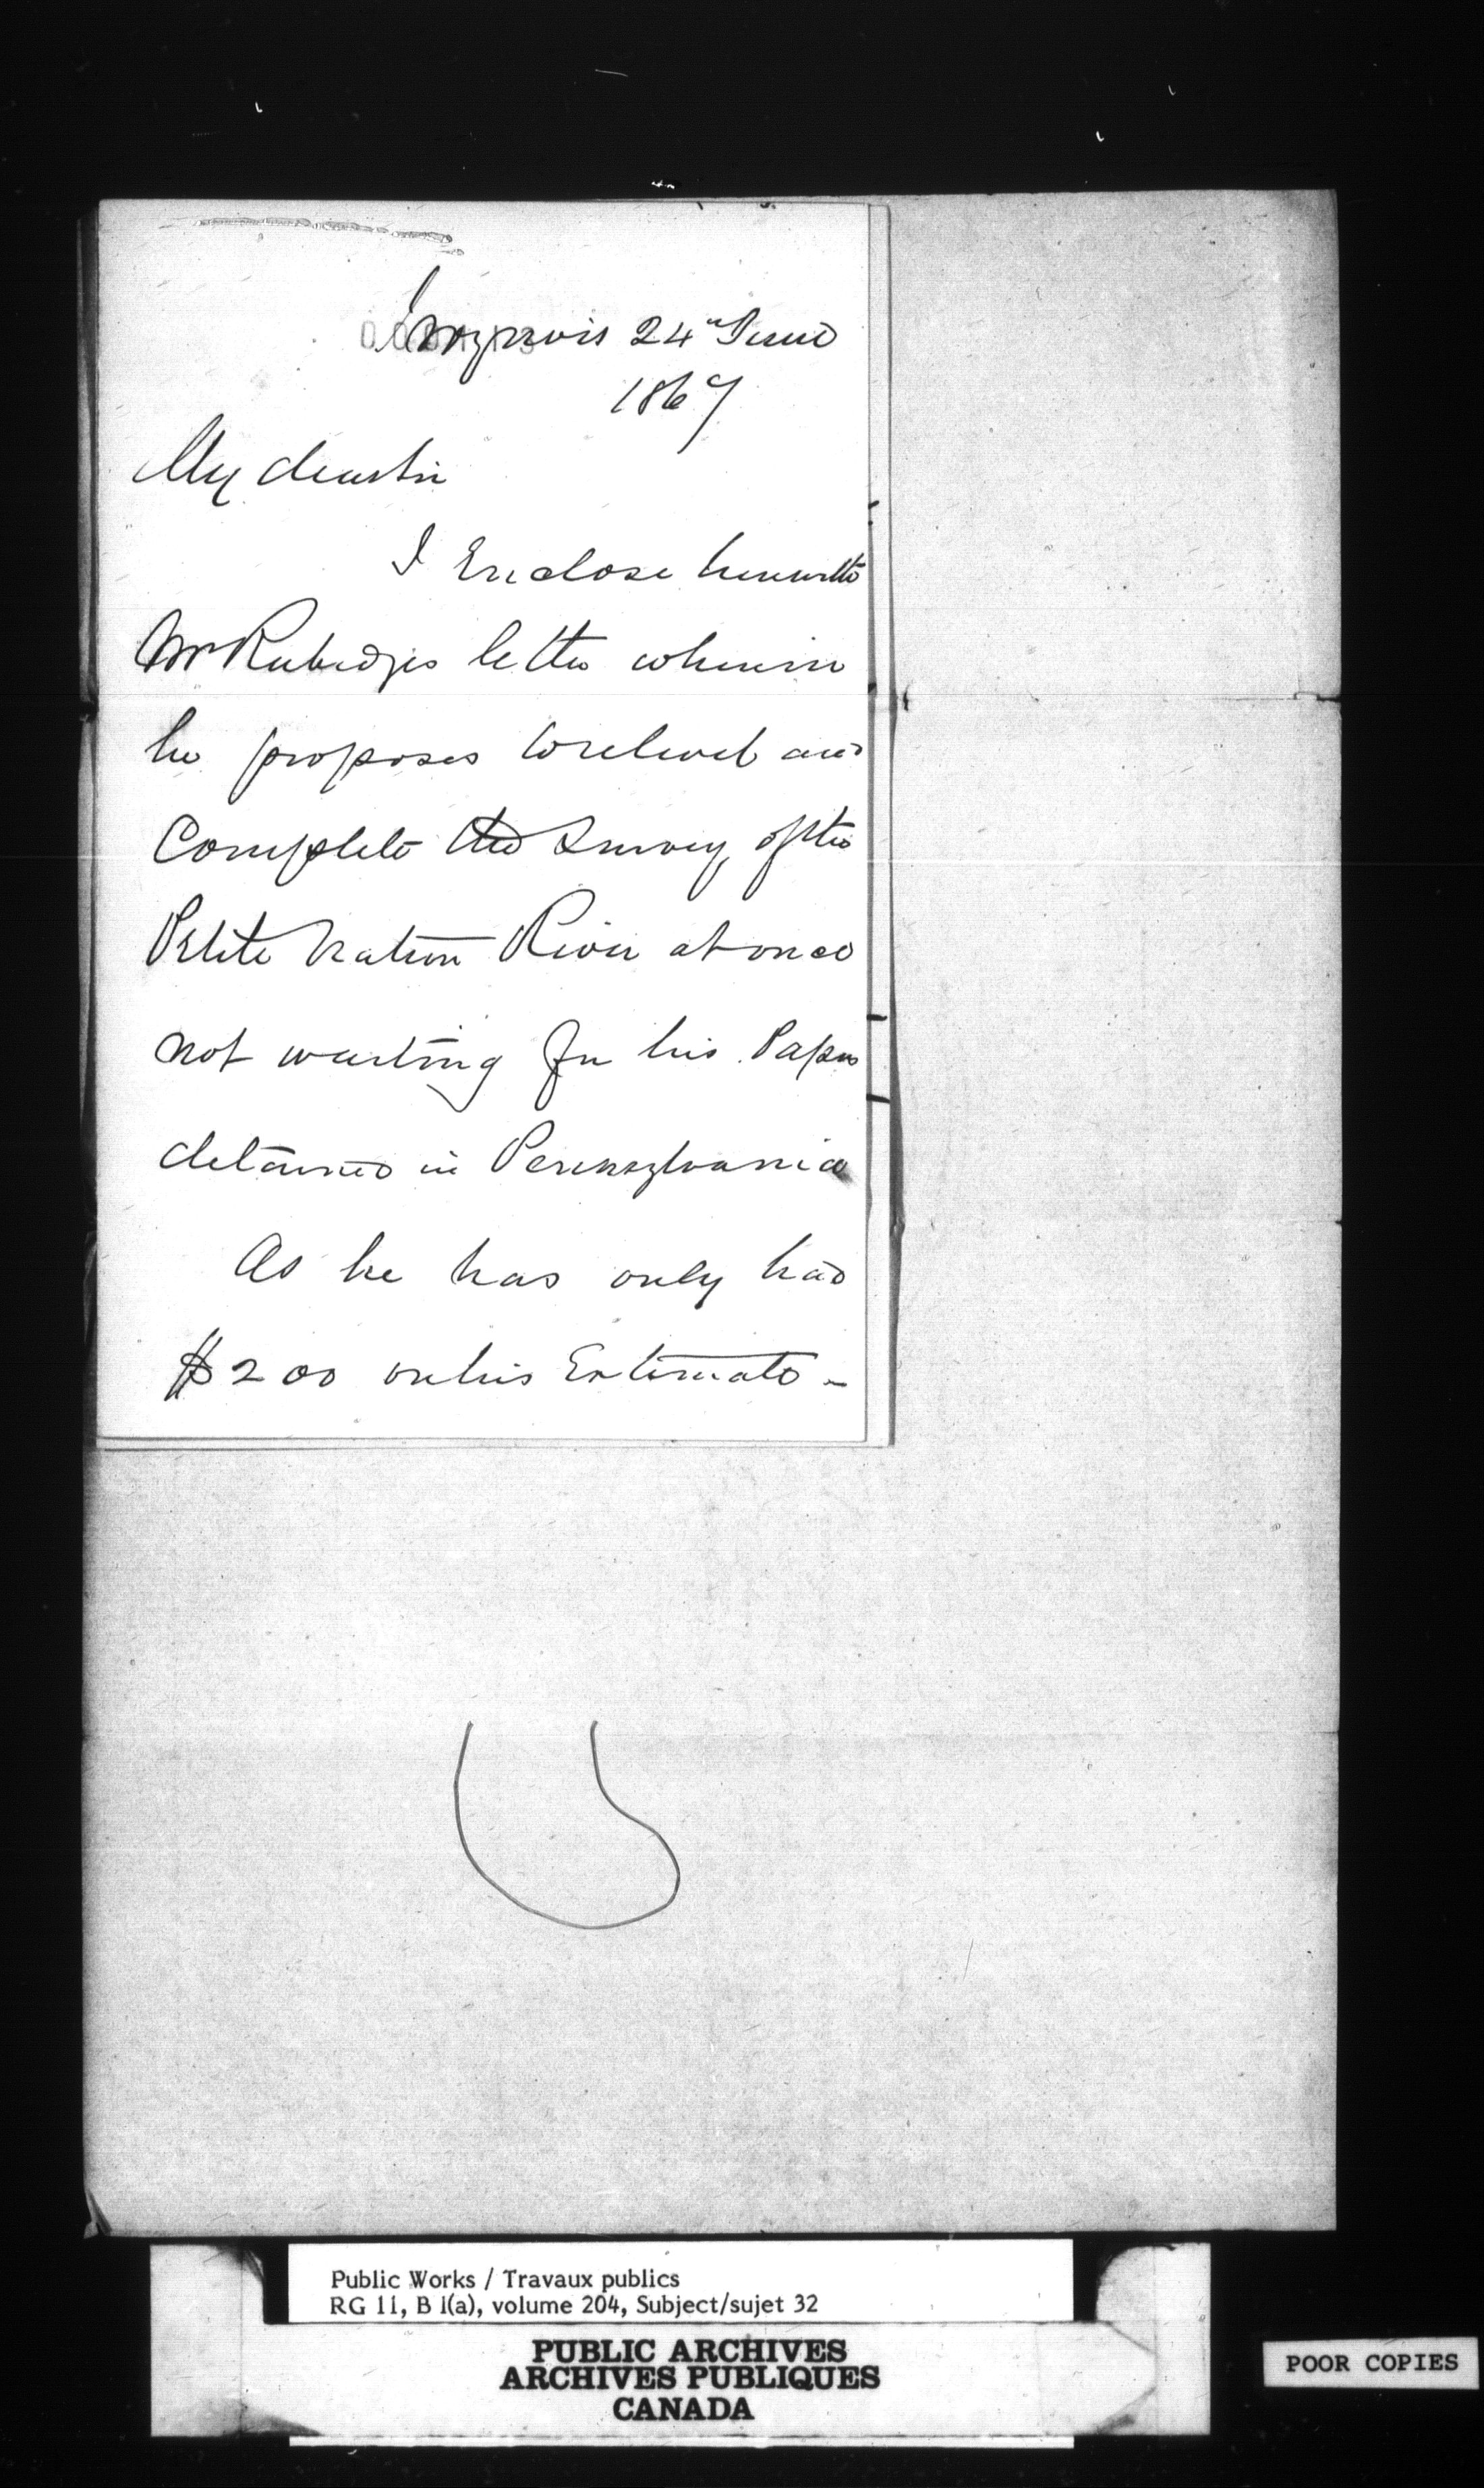 24th June
1867
My dear Sir
I Enclose herewith
Mr Rubidges letter wherein
he proposes to relevel and
Complete the Survey of the
Petite Nation River at once
not waiting for his Papers
detained in Pennsylvania
As he has only had
$200 on his Estimate -
Public Works / Travaux publics
RG 11, B 1(a), volume 204, Subject/sujet 32
PUBLIC ARCHIVES
ARCHIVES PUBLIQUES
CANADA
POOR COPIES